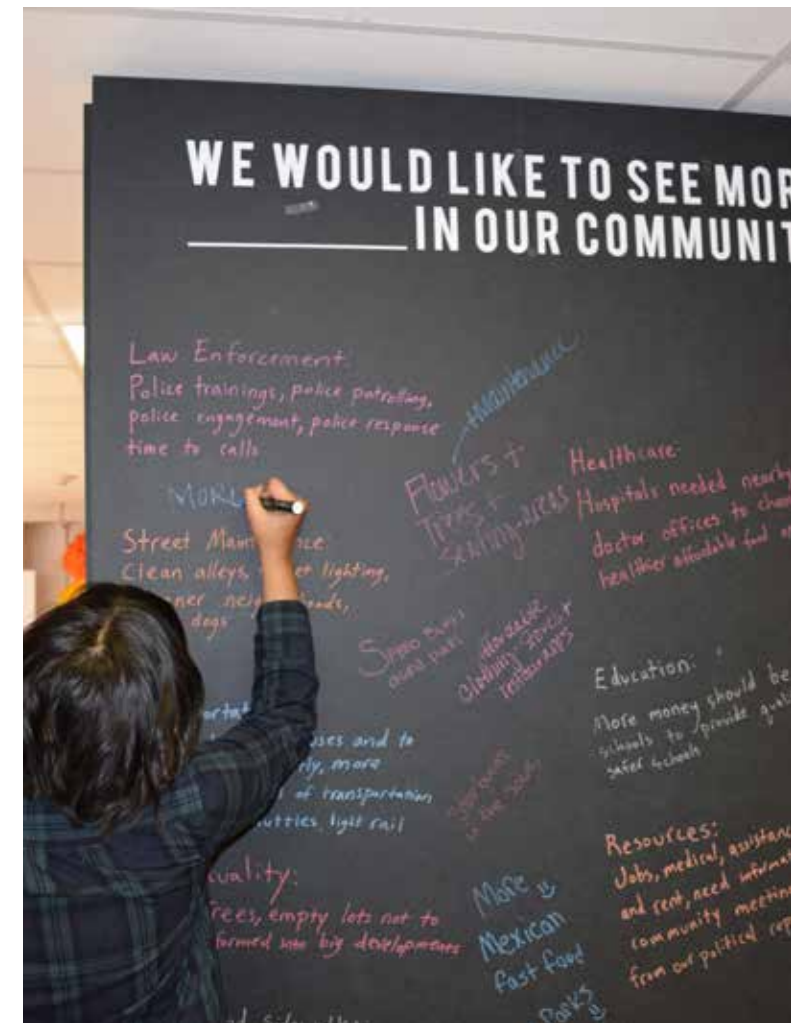 WE WOULD LIKE TO SEE MOR
IN OUR COMMUNIT
Law Enforcement:
Police trainings, police patrolling,
police engagement, police response
time to calls
MOR
Street Main nce
Clean alleys, et lighting,
ner neig oods,
dogs
ortat
uses and to
rly, more
of transportation
uttles, light rail
uality:
Trees, empty lots not to
formed into big developments
maintenance
Flowers +
Trees +
Seating-areas
Speed Bumps
affordable
clothing stores +
restaurants
in the
More
Mexican
fast food
Parks
Healthcare:
Hospitals needed nearby
doctor offices to
healthier affordable food
Education:
More money should be
schools to provide qual
safer schools
Resources:
Jobs, medical, assistanc
and rent, need informat
community meetin
from our political rep